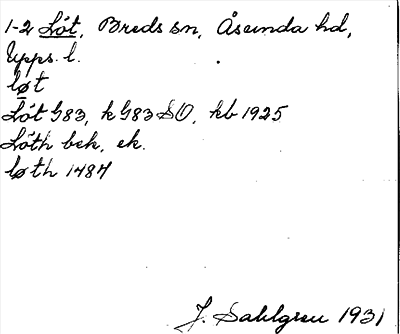 1-2 Löt, Breds sn, Åsunda hd,
Upps. l.
løt
Löt G83, k G83 SO, kb 1925
Löth bek, ek.
løth 1484
J. Sahlgren 1931